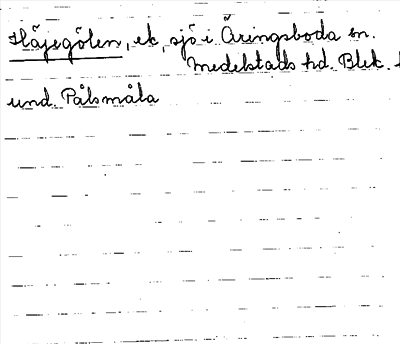 Häjegölen, ek, sjö i Äringsboda sn.
Medelstads hd. Blek.
und. Pålsmåla